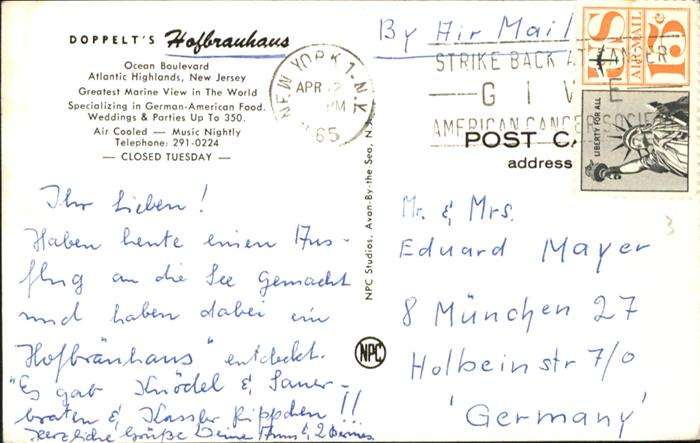 DOPPELT'S Hofbrauhaus
Ocean Boulevard
Atlantic Highlands, New Jersey
Greatest Marine View in The World
Specializing in German-American Food.
Weddings & Parties Up To 350.
Air Cooled — Music Nightly
Telephone: 291-0224
— CLOSED TUESDAY —
Ihr Lieben!
Haben heute einen Aus-
flug an die See gemacht
und haben dabei ein
Hofbräuhaus" entdeckt.
"Es gab Knödel & Sauer-
braten & Kassler Rippchen!!
Herzliche Grüße Deine
NPC Studios, Avon-By-the Sea, N.J.
NPC
NEW YORK 1 N.Y.
APR 2
PM
1965
By Air Mail
STRIKE BACK AT CANCER
— G I V E
AMERICAN CANCER SOCIETY
US AIR MAIL 15c
LIBERTY FOR ALL
POST CA
address
Mr. & Mrs.
Eduard Mayer
8 München 27
Holbeinstr 7/0
'Germany'
3